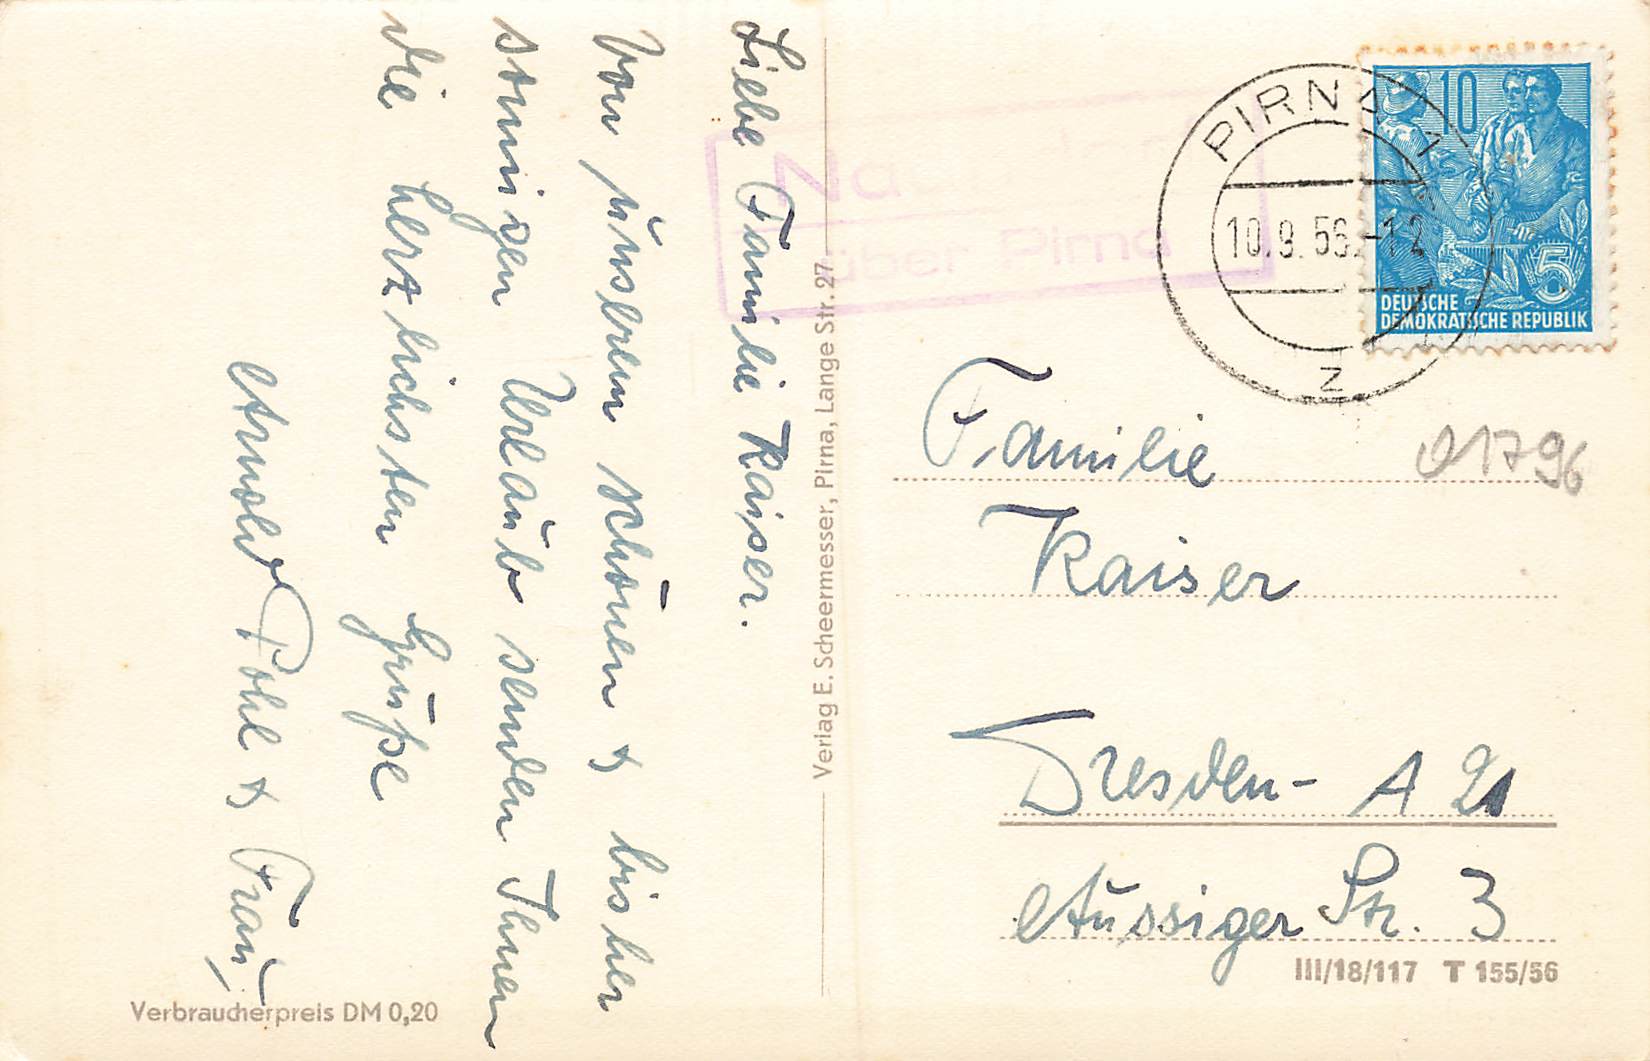 Liebe Familie Kaiser.
Von unserem schönen & bisher
sonnigen Urlaub senden Ihnen
die herzlichsten Grüße
Arnold Pohl & Frau
Verbraucherpreis DM 0,20
Verlag E. Scheermesser, Pirna, Lange Str. 27
über Pirna
PIRNA 1
10.9.56.-12
z
10
5
DEUTSCHE
DEMOKRATISCHE REPUBLIK
01796
Familie
Kaiser
Dresden- A 21
Aussiger Str. 3
III/18/117 T 155/56